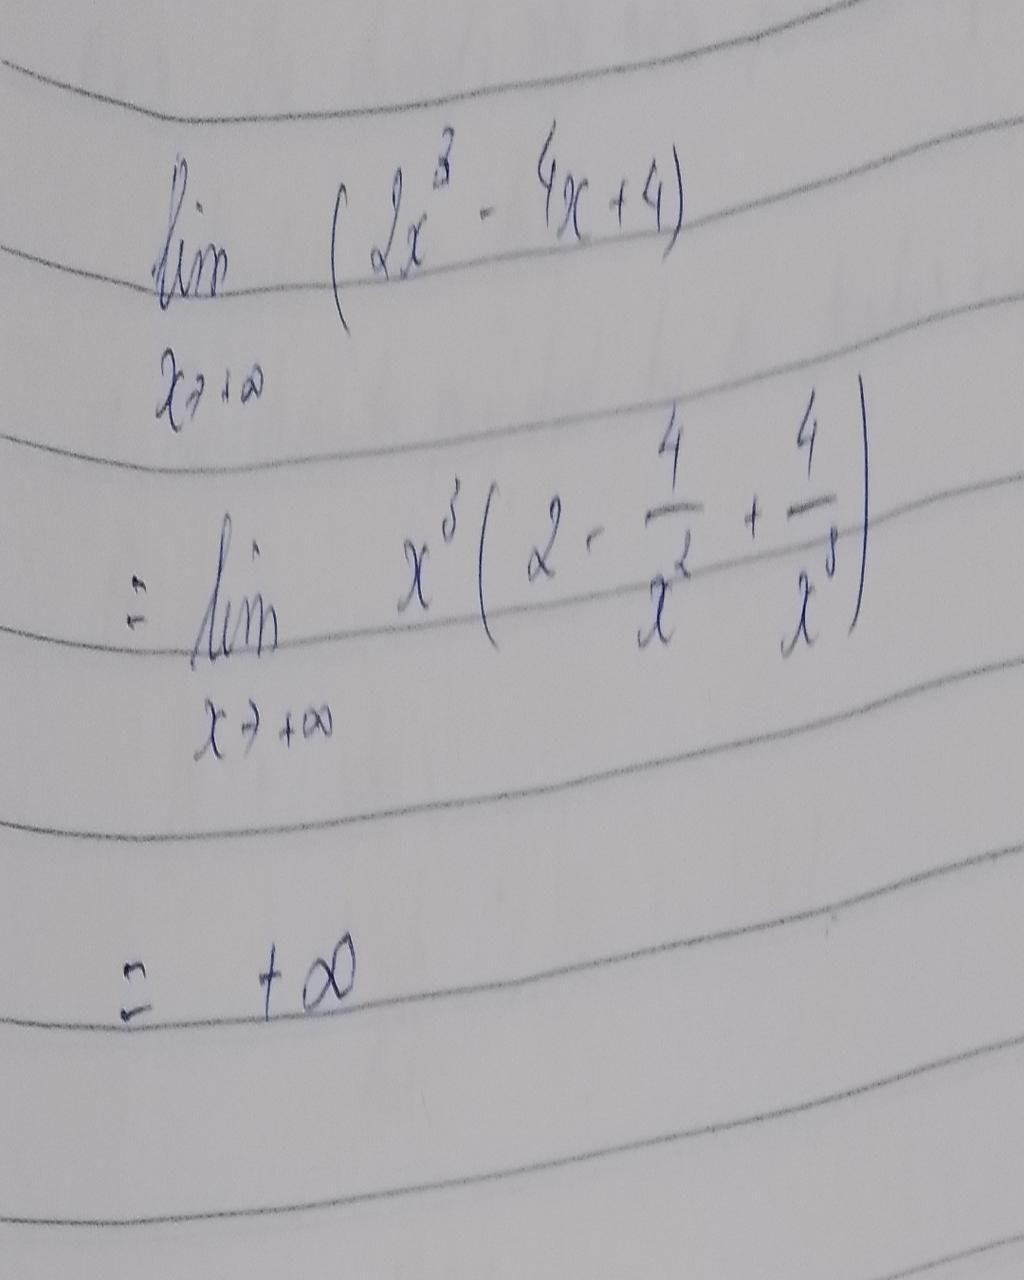 lim (2x³ - 4x + 4)
x→+∞
= lim x³(2 - 4/x² + 4/x³)
x→+∞
= +∞